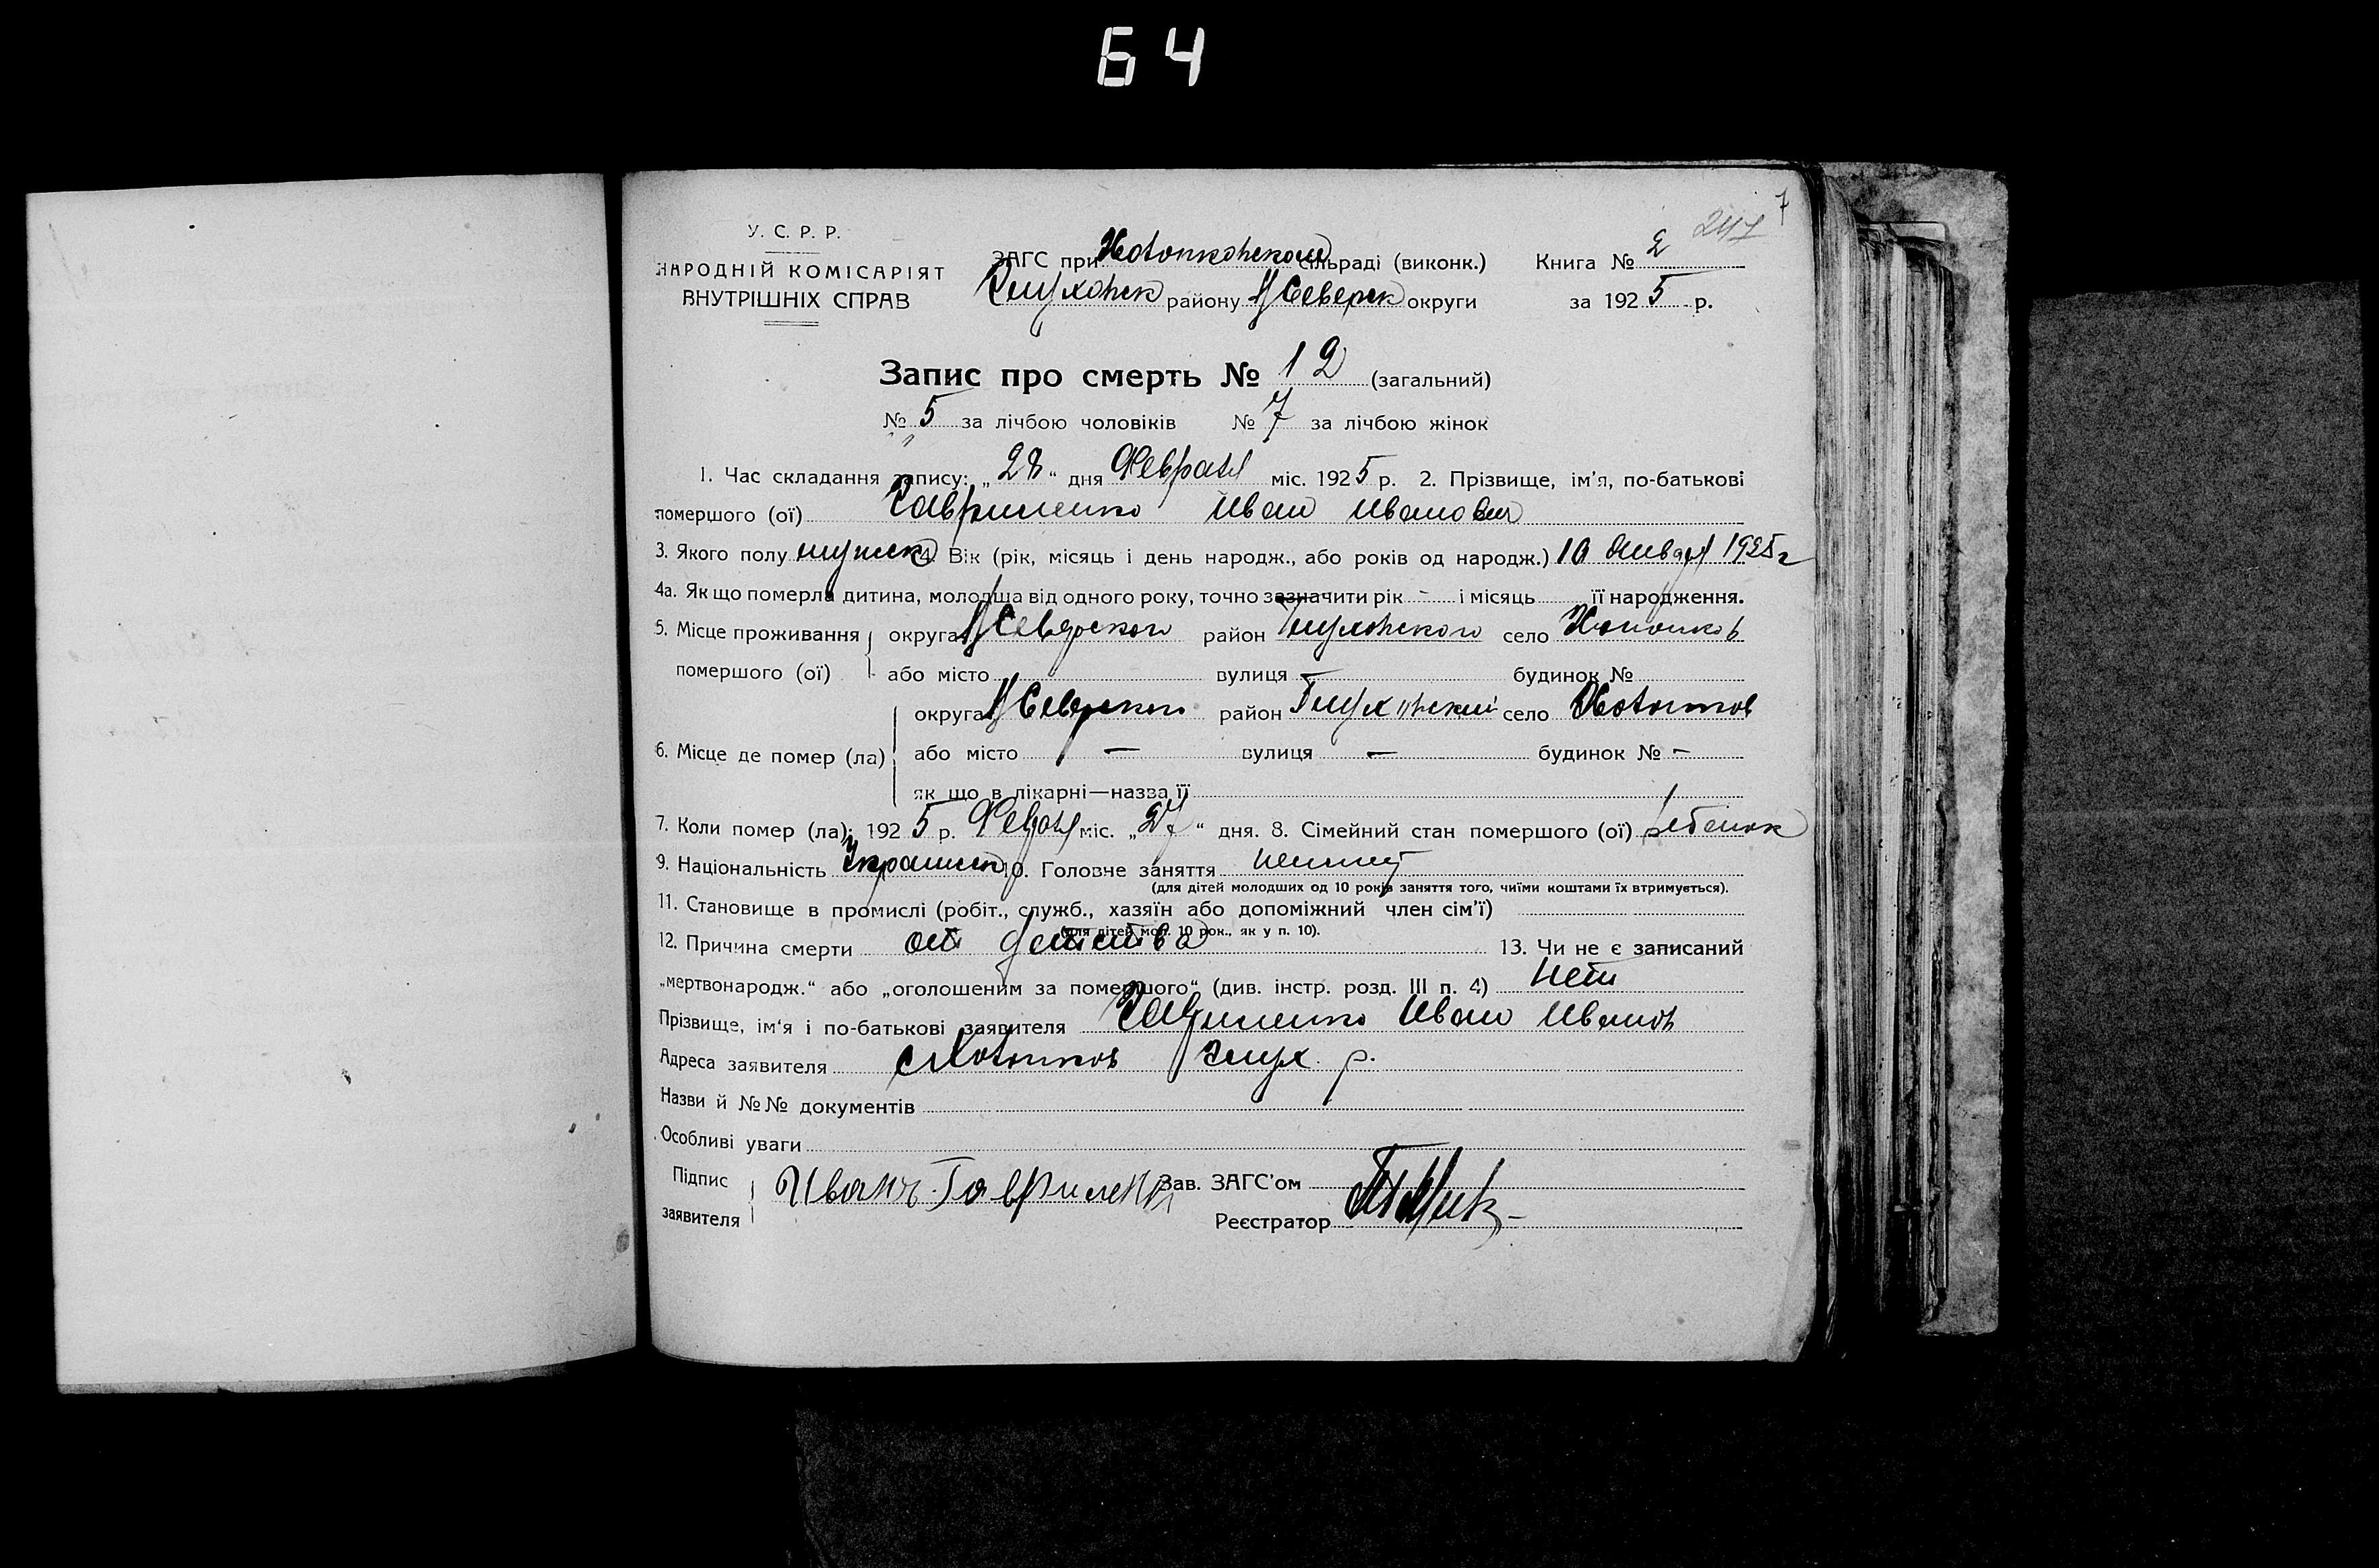 64
7
247
У. С. Р. Р.
НАРОДНІЙ КОМІСАРІЯТ
ВНУТРІШНІХ СПРАВ
ЗАГС при сільраді (виконк.)
району Н Северск округи
Книга № 2
за 1925 р.
Запис про смерть № 12 (загальний)
№ 5 за лічбою чоловіків № 7 за лічбою жінок
1. Час складання запису: „28“ дня Февраля міс. 1925 р. 2. Прізвище, ім'я, по-батькові
помершого (ої) Гавриленко Иван Иванович
3. Якого полу мужск 4. Вік (рік, місяць і день народж., або років од народж.) 10 Января 1925 г
4а. Як що померла дитина, молодша від одного року, точно зазначити рік - і місяць її народження.
5. Місце проживання округа Н Северского район Глуховского село
помершого (ої) або місто вулиця — будинок №
округа Н Северского район Глуховский село
6. Місце де помер (ла) або місто — вулиця — будинок № —
як що в лікарні—назва її
7. Коли помер (ла): 1925 р. Февраля міс. „27“ дня. 8. Сімейний стан помершого (ої) ребенок
9. Національність Украинец 10. Головне заняття
(для дітей молодших од 10 років заняття того, чиїми коштами їх втримується).
11. Становище в промислі (робіт., служб., хазяїн або допоміжний член сім'ї)
(для дітей мол. 10 рок., як у п. 10).
12. Причина смерти от детства 13. Чи не є записаний
„мертвонародж.“ або „оголошеним за помершого“ (див. інстр. розд. III п. 4) Нет
Прізвище, ім'я і по-батькові заявителя Гавриленко Иван Иванов
Адреса заявителя Глух. р.
Назви й №№ документів
Особливі уваги
Підпис заявителя Иванъ Гавриленко
Зав. ЗАГС'ом
Реєстратор